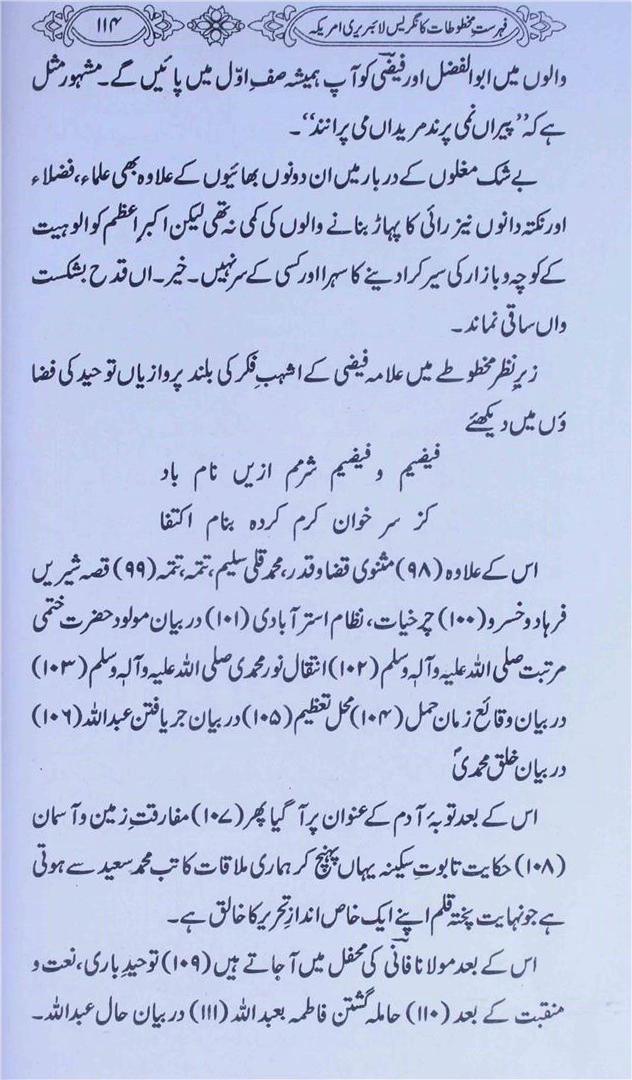 فہرستِ مخطوطات کانگریس لائبریری امریکہ
۱۱۴
والوں میں ابوالفضل اور فیضی کو آپ ہمیشہ صفِ اوّل میں پائیں گے۔ مشہور مثل
ہے کہ ”پیراں نمی پرند مریداں می پرانند“۔
بے شک مغلوں کے دربار میں ان دونوں بھائیوں کے علاوہ بھی علماء، فضلاء
اور نکتہ دانوں نیز رائی کا پہاڑ بنانے والوں کی کمی نہ تھی لیکن اکبرِ اعظم کو الوہیت
کے کوچہ و بازار کی سیر کرا دینے کا سہرا اور کسی کے سر نہیں۔ خیر۔ اں قدح بشکست
واں ساقی نماند۔
زیرِ نظر مخطوطے میں علامہ فیضی کے اشہبِ فکر کی بلند پروازیاں توحید کی فضا
ؤں میں دیکھئے
فیضیم و فیضیم شرمم ازیں نام باد
کز سر خوان کرم کردہ بنام اکتفا
اس کے علاوہ (۹۸) مثنوی قضا و قدر، محمد قلی سلیم، تتمہ، تتمہ (۹۹) قصہ شیریں
فرہاد و خسرو (۱۰۰) چرخیات، نظام استرآبادی (۱۰۱) در بیان مولود حضرت ختمی
مرتبت صلی اللہ علیہ وآلہٖ وسلم (۱۰۲) انتقال نور محمدی صلی اللہ علیہ وآلہٖ وسلم (۱۰۳)
در بیان وقائع زمان حمل (۱۰۴) محل تعظیم (۱۰۵) در بیان جریافتن عبداللہ (۱۰۶)
در بیان خلق محمدیؐ
اس کے بعد توبۂ آدم کے عنوان پر آ گیا پھر (۱۰۷) مفارقتِ زمین و آسمان
(۱۰۸) حکایت تابوتِ سکینہ یہاں پہنچ کر ہماری ملاقات کاتب محمد سعید سے ہوتی
ہے جو نہایت پختہ قلم اپنے ایک خاص اندازِ تحریر کا خالق ہے۔
اس کے بعد مولانا فانی کی محفل میں آ جاتے ہیں (۱۰۹) توحیدِ باری، نعت و
منقبت کے بعد (۱۱۰) حاملہ گشتن فاطمہ بعبداللہ (۱۱۱) در بیان حال عبداللہ۔